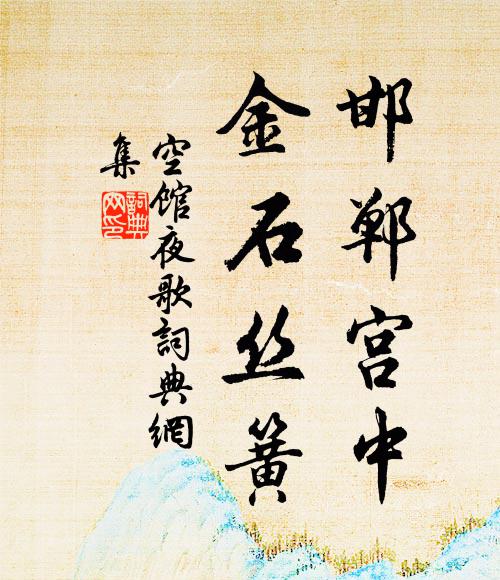 邯郸宫中
金石丝簧
空馆夜歌詞典網
集
詞典
网印